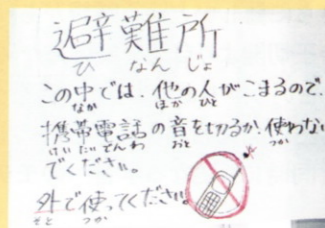 避難所
ひなんじょ
この中では、他の人がこまるので、
なか ほか ひと
携帯電話の音を切るか、使わない
けいたいでんわ おと き つか
でください。
外で使ってください。
そと つか